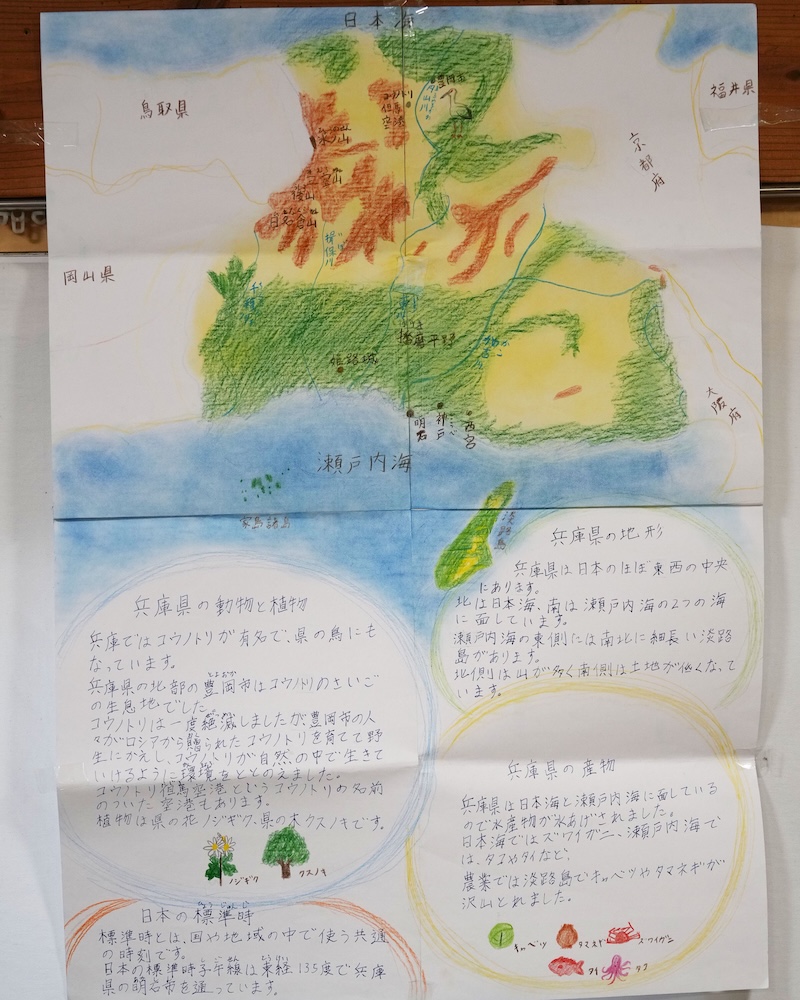 日本海
鳥取県
福井県
京都府
岡山県
大阪府
コウノトリ
但馬
空港
豊岡市
円山川
氷ノ山
後山
千種川
揖保川
播磨平野
姫路城
明石
神戸
西宮
瀬戸内海
家島諸島
淡路島
兵庫県の地形
兵庫県は日本のほぼ東西の中央
にあります。
北は日本海、南は瀬戸内海の2つの海
に面しています。
瀬戸内海の東側には南北に細長い淡路
島があります。
北側は山が多く南側は土地が低くなって
います。
兵庫県の動物と植物
兵庫ではコウノトリが有名で、県の鳥にも
なっています。
兵庫県の北部の豊岡市はコウノトリのさいご
の生息地でした。
コウノトリは一度絶滅しましたが、豊岡市の人
々がロシアから贈られたコウノトリを育てて野
生にかえし、コウノトリが自然の中で生きて
いけるように環境をととのえました。
コウノトリ但馬空港というコウノトリの名前
のついた空港もあります。
植物は県の花ノジギク、県の木クスノキです。
ノジギク
クスノキ
兵庫県の産物
兵庫県は日本海と瀬戸内海に面している
ので水産物が水あげされました。
日本海ではズワイガニ、瀬戸内海で
は、タコやタイなど、
農業では淡路島でキャベツやタマネギが
沢山とれました。
キャベツ
タマネギ
ズワイガニ
タイ
タコ
日本の標準時
標準時とは、国や地域の中で使う共通
の時刻です。
日本の標準時子午線は東経135度で兵庫
県の明石市を通っています。